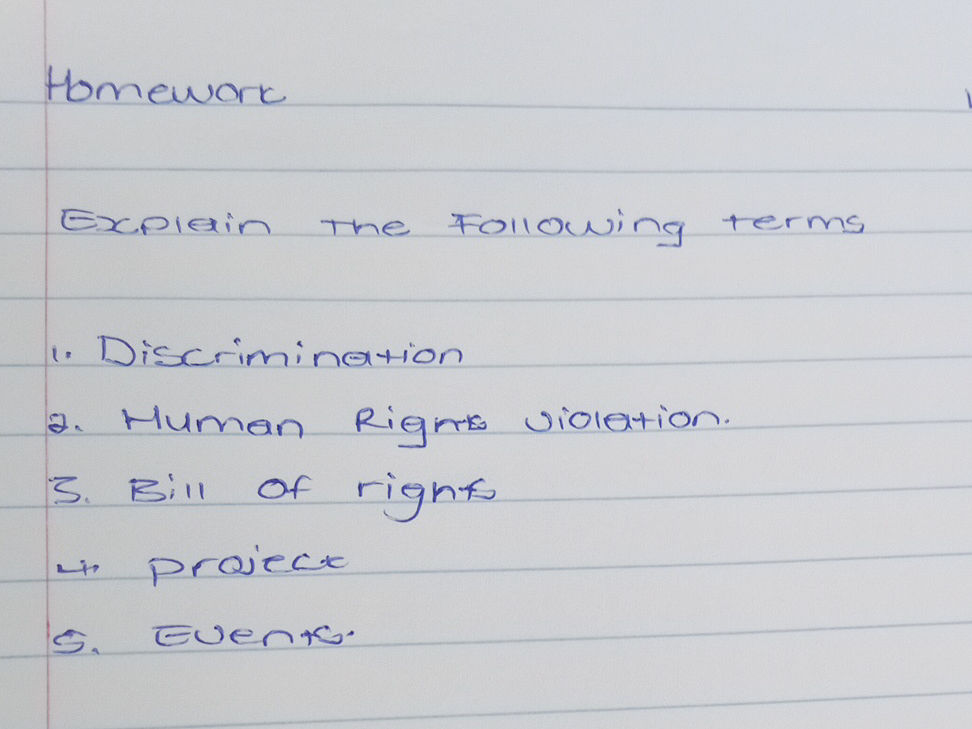 Homework
Explain the Following terms
1. Discrimination
2. Human Rights violation.
3. Bill of rights
4. project
5. Events.